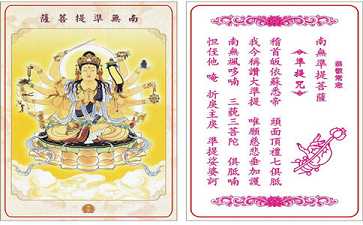 南無準提菩薩
恭敬常念
南無準提菩薩
準提咒
稽首皈依蘇悉帝　頭面頂禮七俱胝
我今稱讚大準提　唯願慈悲垂加護
南無颯哆喃　三藐三菩陀　俱胝喃
怛姪他　唵　折戾主戾　準提娑婆訶